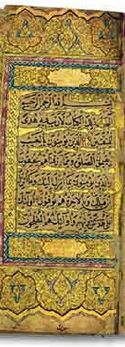 بسم الله الرحمن الرحيم
الم ذلك الكتاب لا ريب فيه هدى
للمتقين الذين يؤمنون بالغيب
ويقيمون الصلوة ومما رزقناهم ينفقون
والذين يؤمنون بما انزل اليك وما انزل
من قبلك وبالاخرة هم يوقنون اولئك
على هدى من ربهم واولئك هم المفلحون